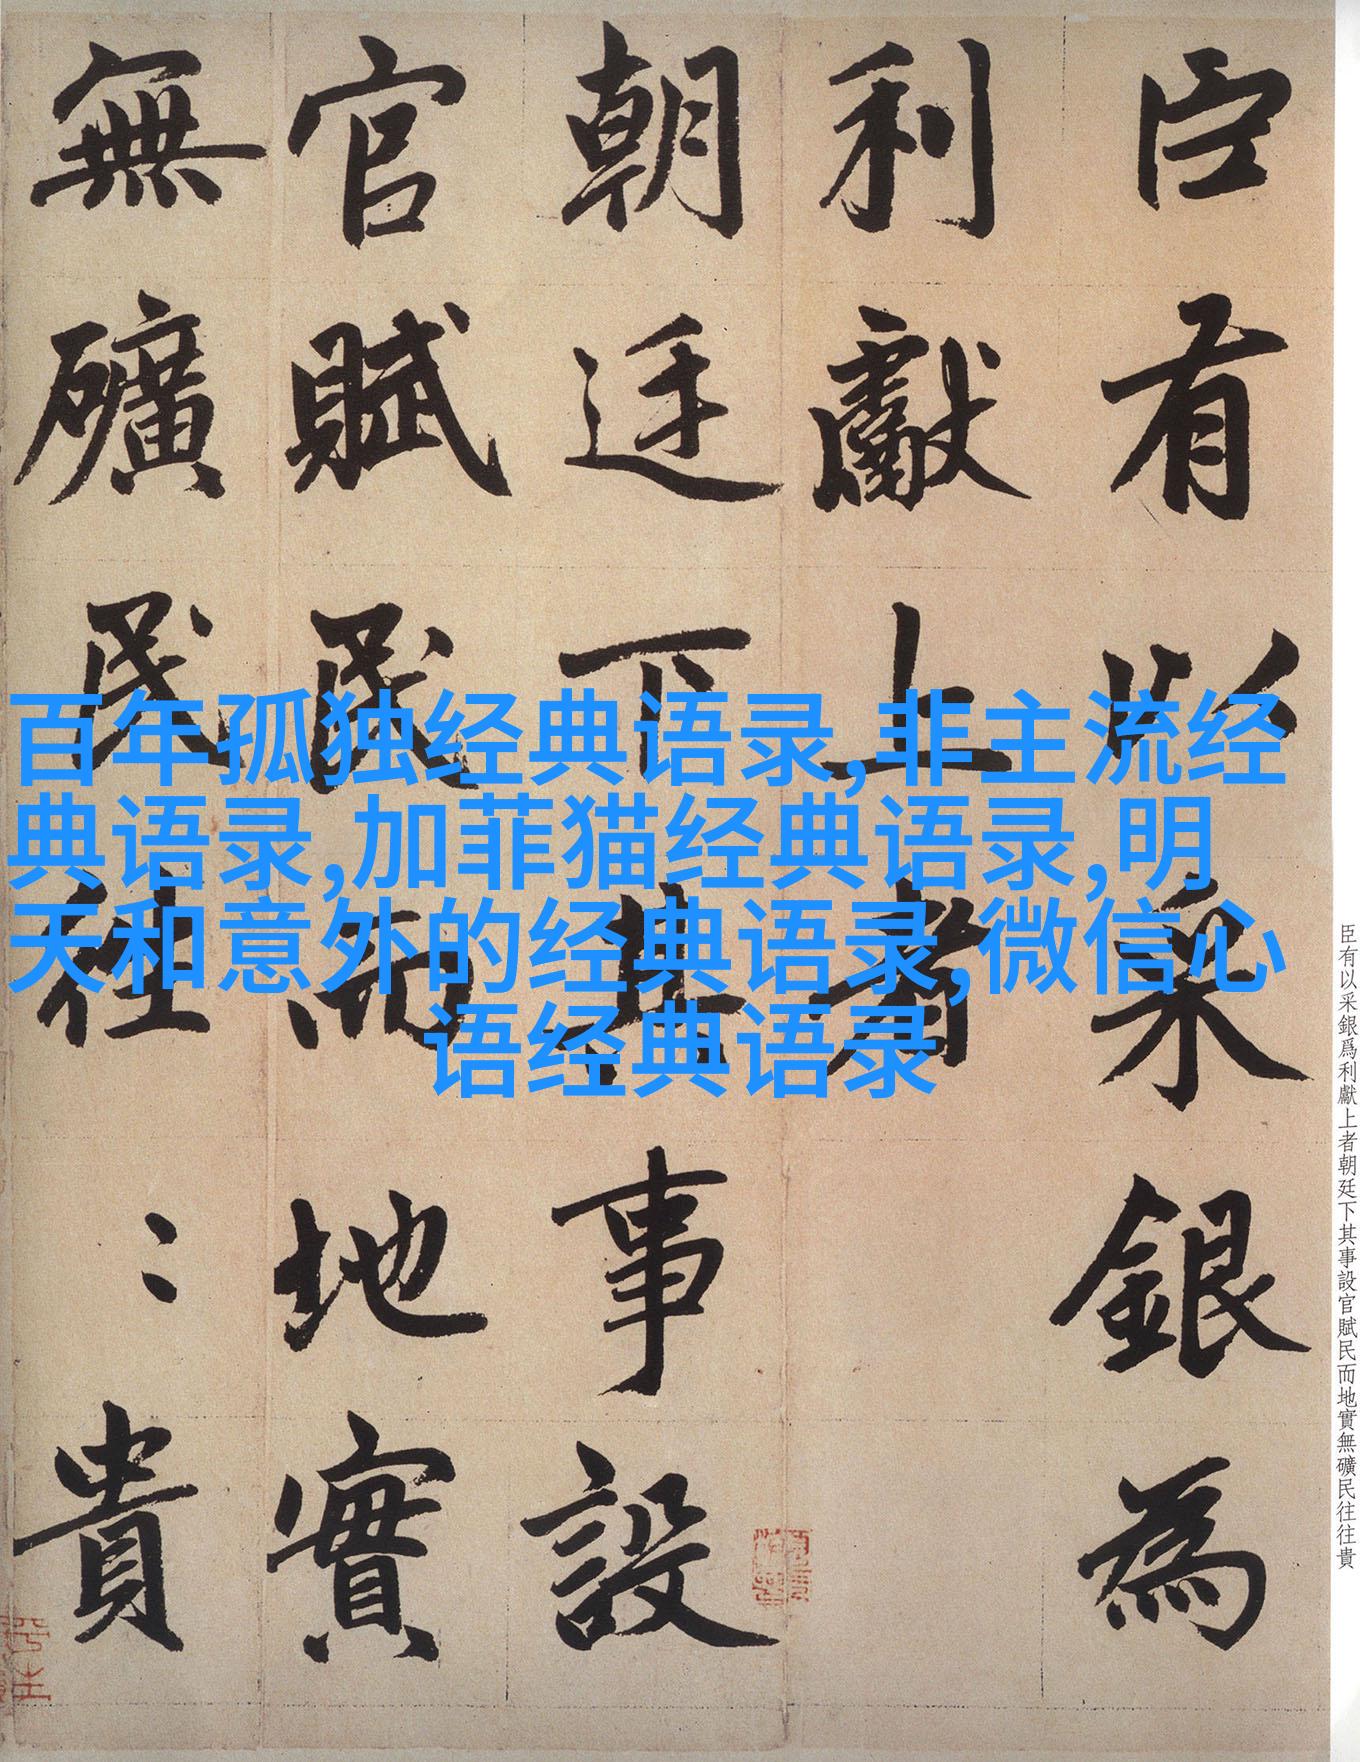 臣有以采銀為
利獻上者
朝廷下其事設
官賦民而地實
無礦民往〻貴
百年孤独经典语录,非主流经
典语录,加菲猫经典语录,明
天和意外的经典语录,微信心
语经典语录
臣有以采銀爲利獻上者朝廷下其事設官賦民而地實無礦民往往貴